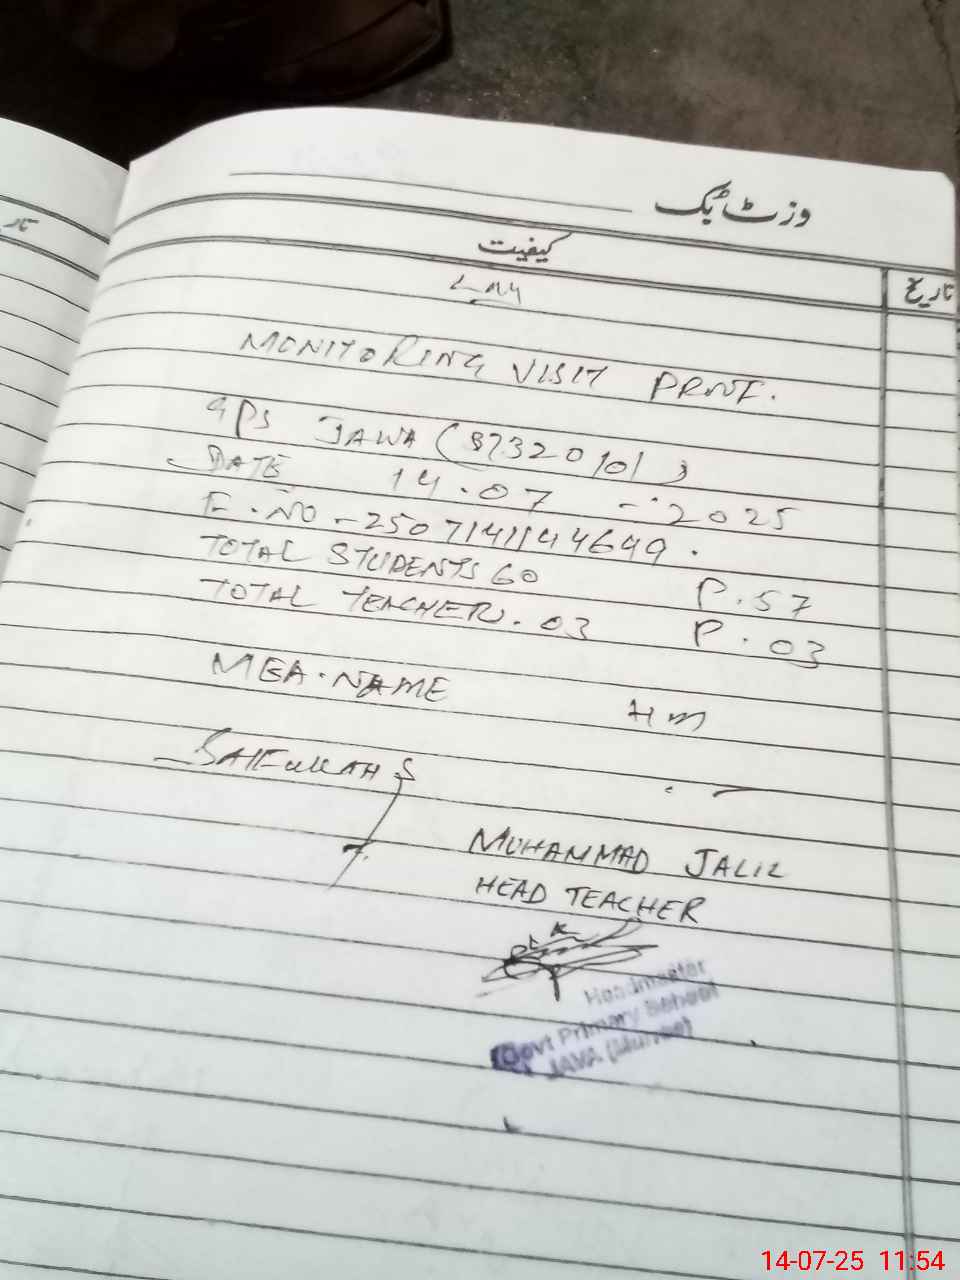 وزٹ بُک
کیفیت
تاریخ
تار
MONITORING VISIT PROF.
GPS JAWA (37320101)
DATE 14.07-2025
E.NO-2507141144649.
TOTAL STUDENTS 60 P.57
TOTAL TEACHER. 03 P.03
MEA.NAME HM
SAIFULLAH
MUHAMMAD JALIL
HEAD TEACHER
Headmaster
Govt Primary School
JAVA
14-07-25 11:54